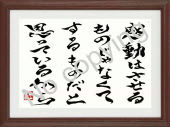 感動はさせる
ものじゃなくて
するものだと
思っている
No copying